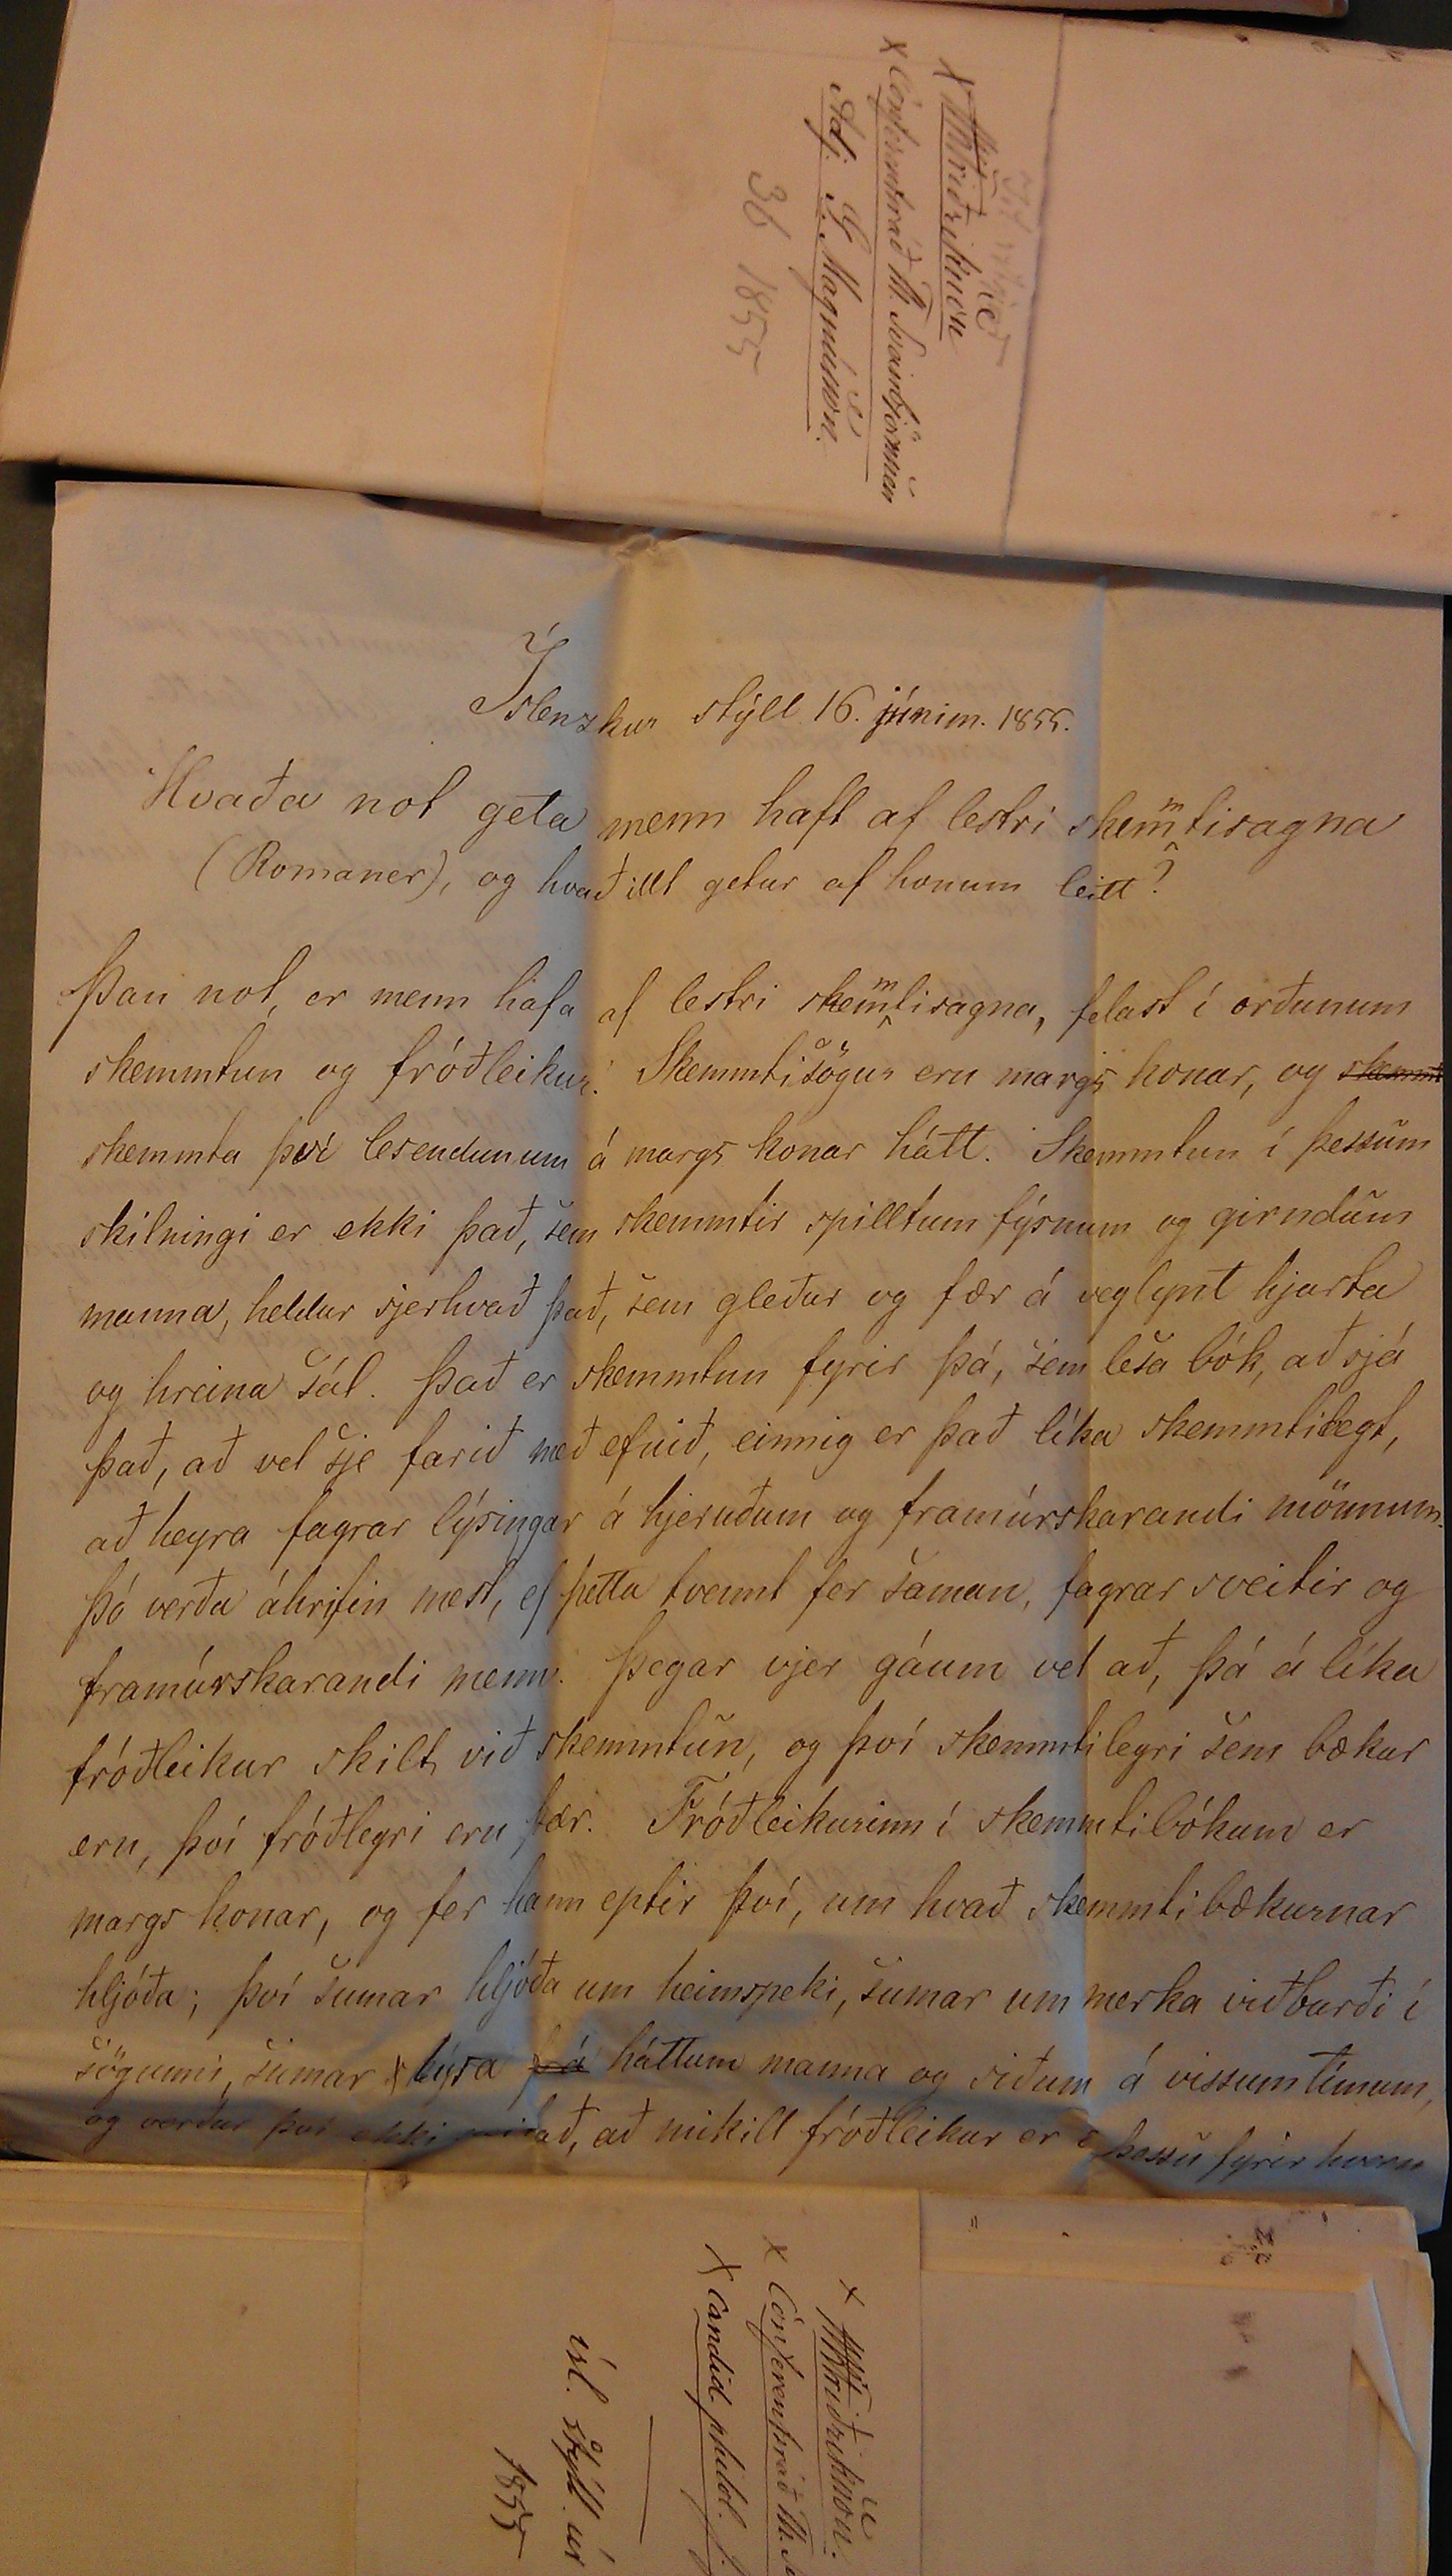 H Kr Friðriksson
Conferensráð Th. Sveinbjörnsson
Adj. G. Magnússon.
36 1855
Íslenzkur stýll 16. júním. 1855.
Hvaða not geta menn haft af lestri skemmtisagna
(Romaner), og hvað illt getur af honum leitt?
Þau not, er menn hafa af lestri skemmtisagna, felast í orðunum
skemmtun og fróðleikur. Skemmtisögur eru margs konar, og skemmt
skemmta því lesendunum á margs konar hátt. Skemmtun í þessum
skilningi er ekki það, sem skemmtir spilltum fýsnum og girndum
manna, heldur sjerhvað það, sem gleður og fær á veglynt hjarta
og hreina sál. Það er skemmtun fyrir þá, sem lesa bók, að sjá
það, að vel sje farið með efnið, einnig er það líka skemmtilegt,
að heyra fagrar lýsingar á hjeruðum og framúrskarandi mönnum.
Þó verða áhrifin mest, ef þetta tvennt fer saman, fagrar sveitir og
framúrskarandi menn. Þegar vjer gáum vel að, þá á líka
fróðleikur skilt við skemmtun, og því skemmtilegri sem bækur
eru, því fróðlegri eru þær. Fróðleikurinn í skemmtibókum er
margs konar, og fer hann eptir því, um hvað skemmtibækurnar
hljóða; því sumar hljóða um heimspeki, sumar um merka viðburði í
sögunni, sumar lýsa háttum manna og siðum á vissum tímum,
og verður því ekki neitað, að mikill fróðleikur er í þessu fyrir hvern
H Kr Friðriksson.
Conferensráð Th.
Candid. philol. J.
ísl. stýll. úr
1855